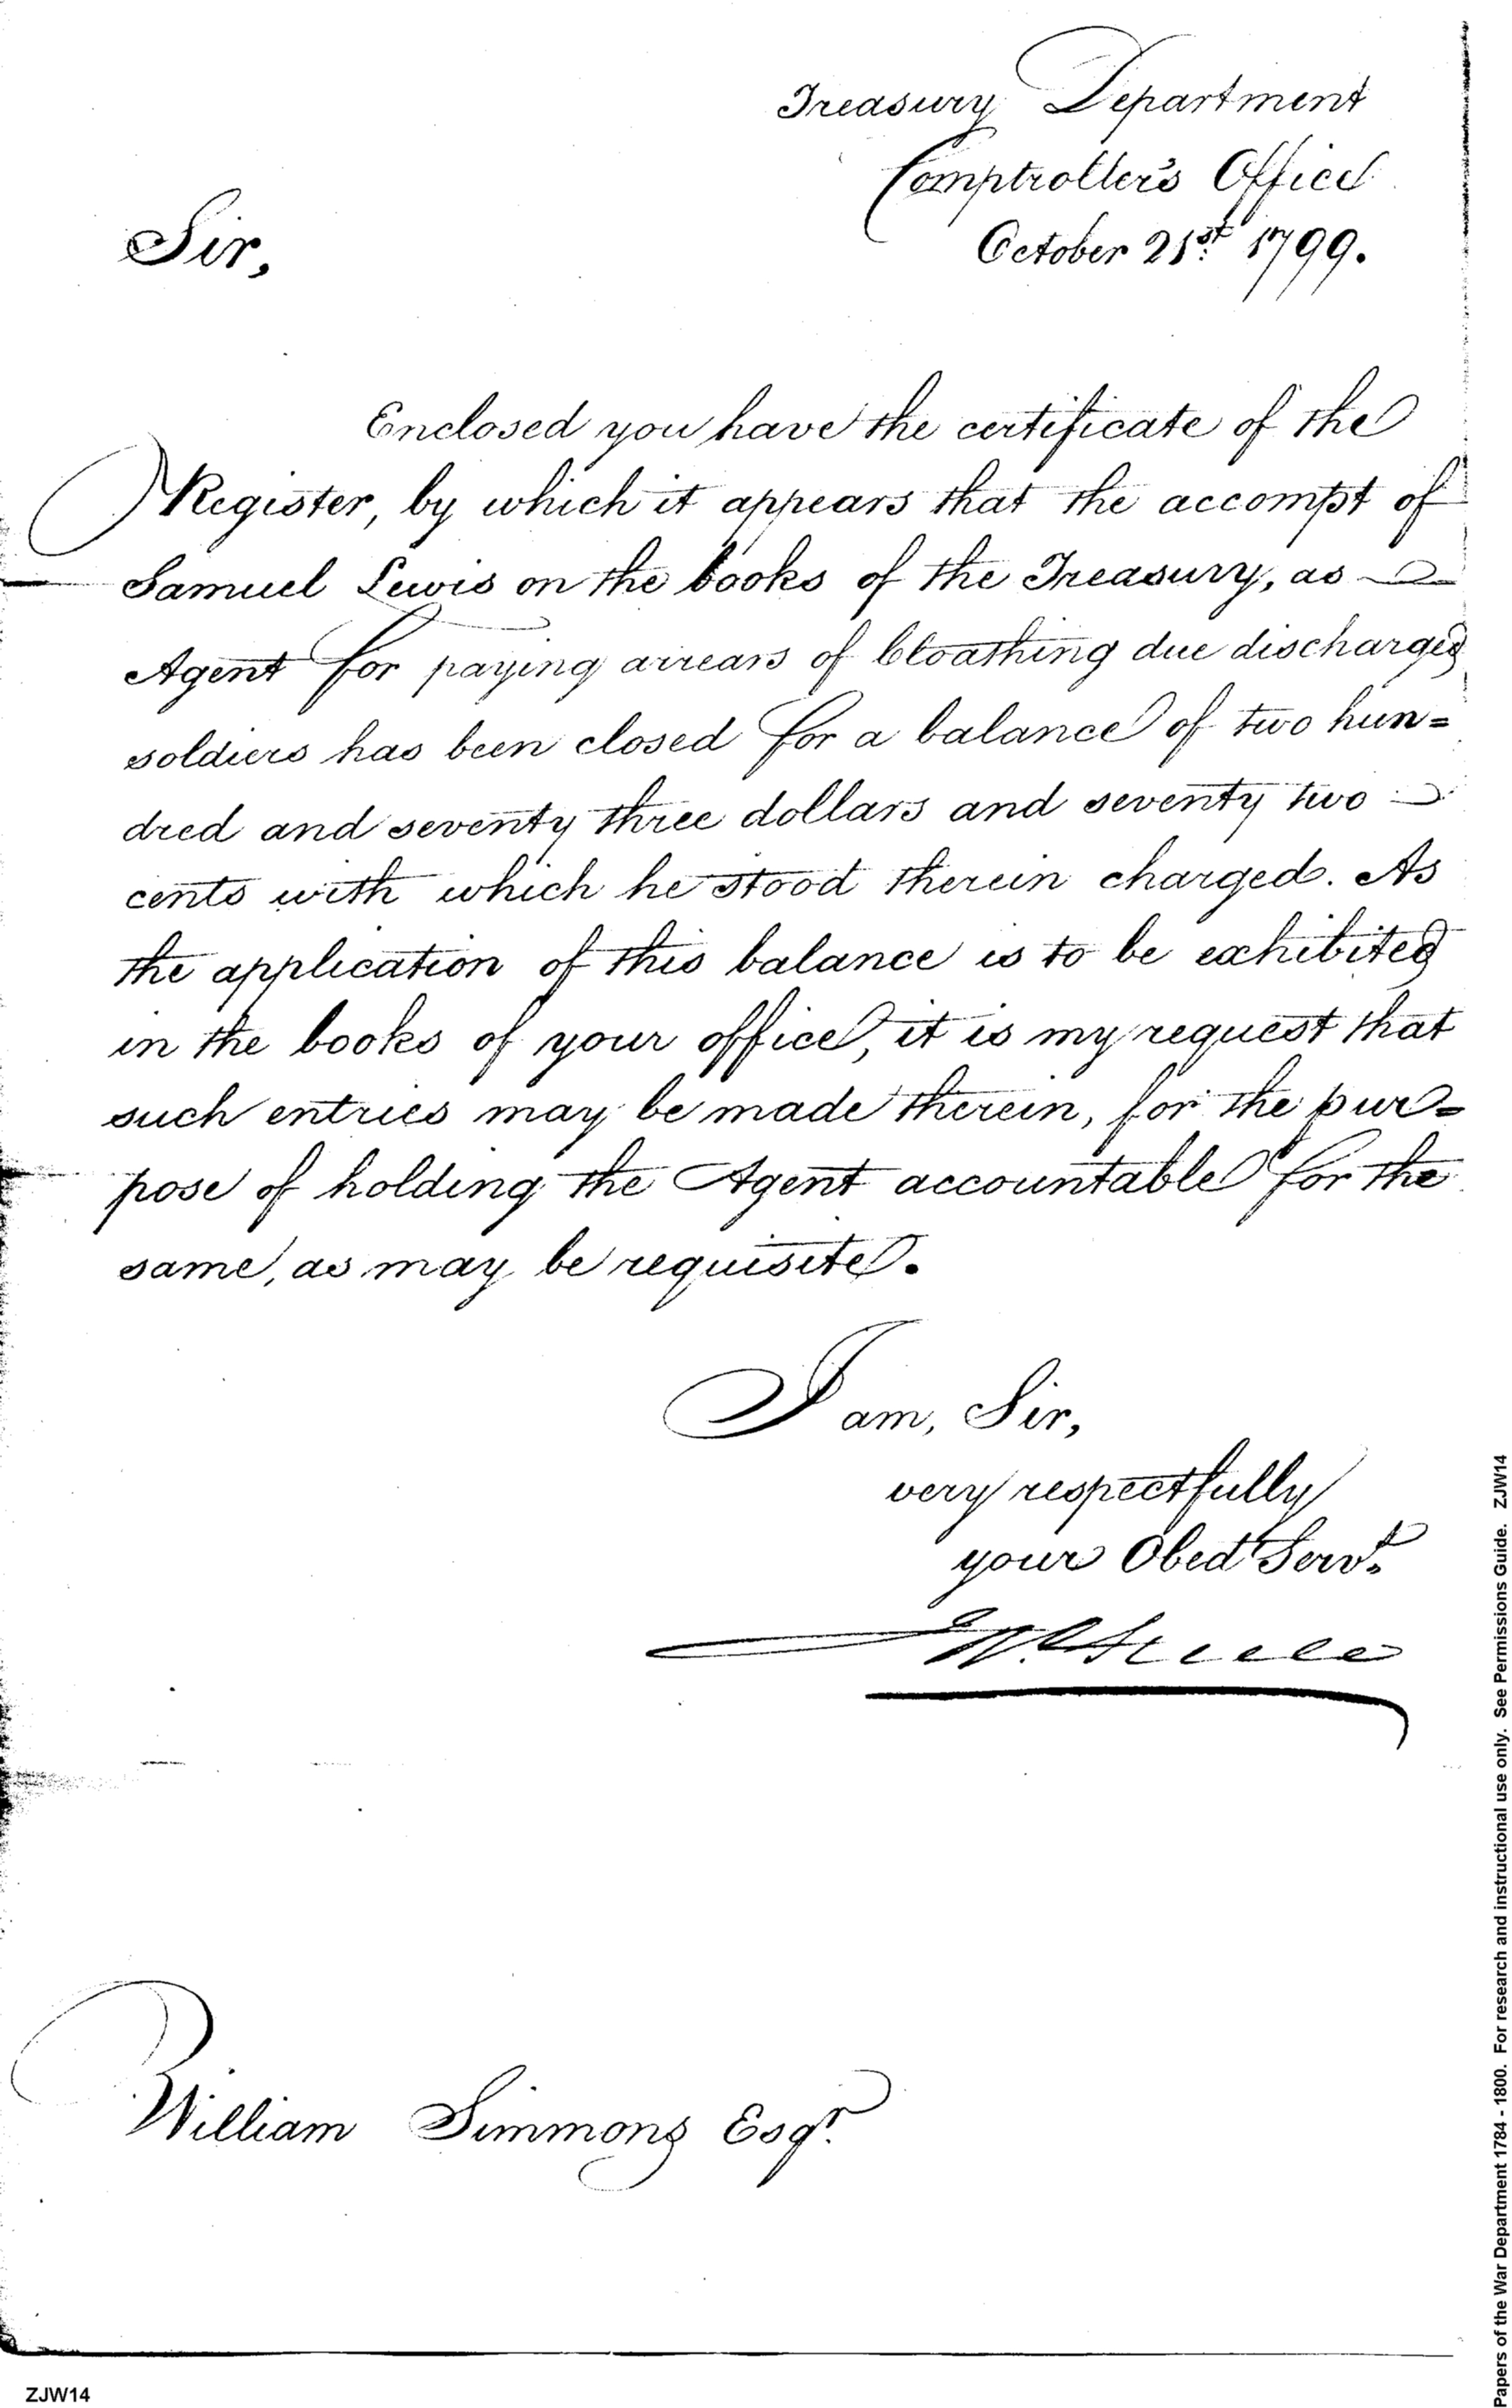 Treasury Department
Comptroller's Office
October 21st 1799.
Sir,
Enclosed you have the certificate of the
Register, by which it appears that the accompt of
Samuel Lewis on the books of the Treasury, as
Agent for paying arrears of Cloathing due discharged
soldiers has been closed for a balance of two hun=
dred and seventy three dollars and seventy two
cents with which he stood therein charged. As
the application of this balance is to be exhibited
in the books of your office, it is my request that
such entries may be made therein, for the pur=
pose of holding the Agent accountable for the
same, as may be requisite.
I am, Sir,
very respectfully
your Obed Servt.
Jno. Steele
William Simmons Esqr.
ZJW14
Papers of the War Department 1784 - 1800. For research and instructional use only. See Permissions Guide. ZJW14